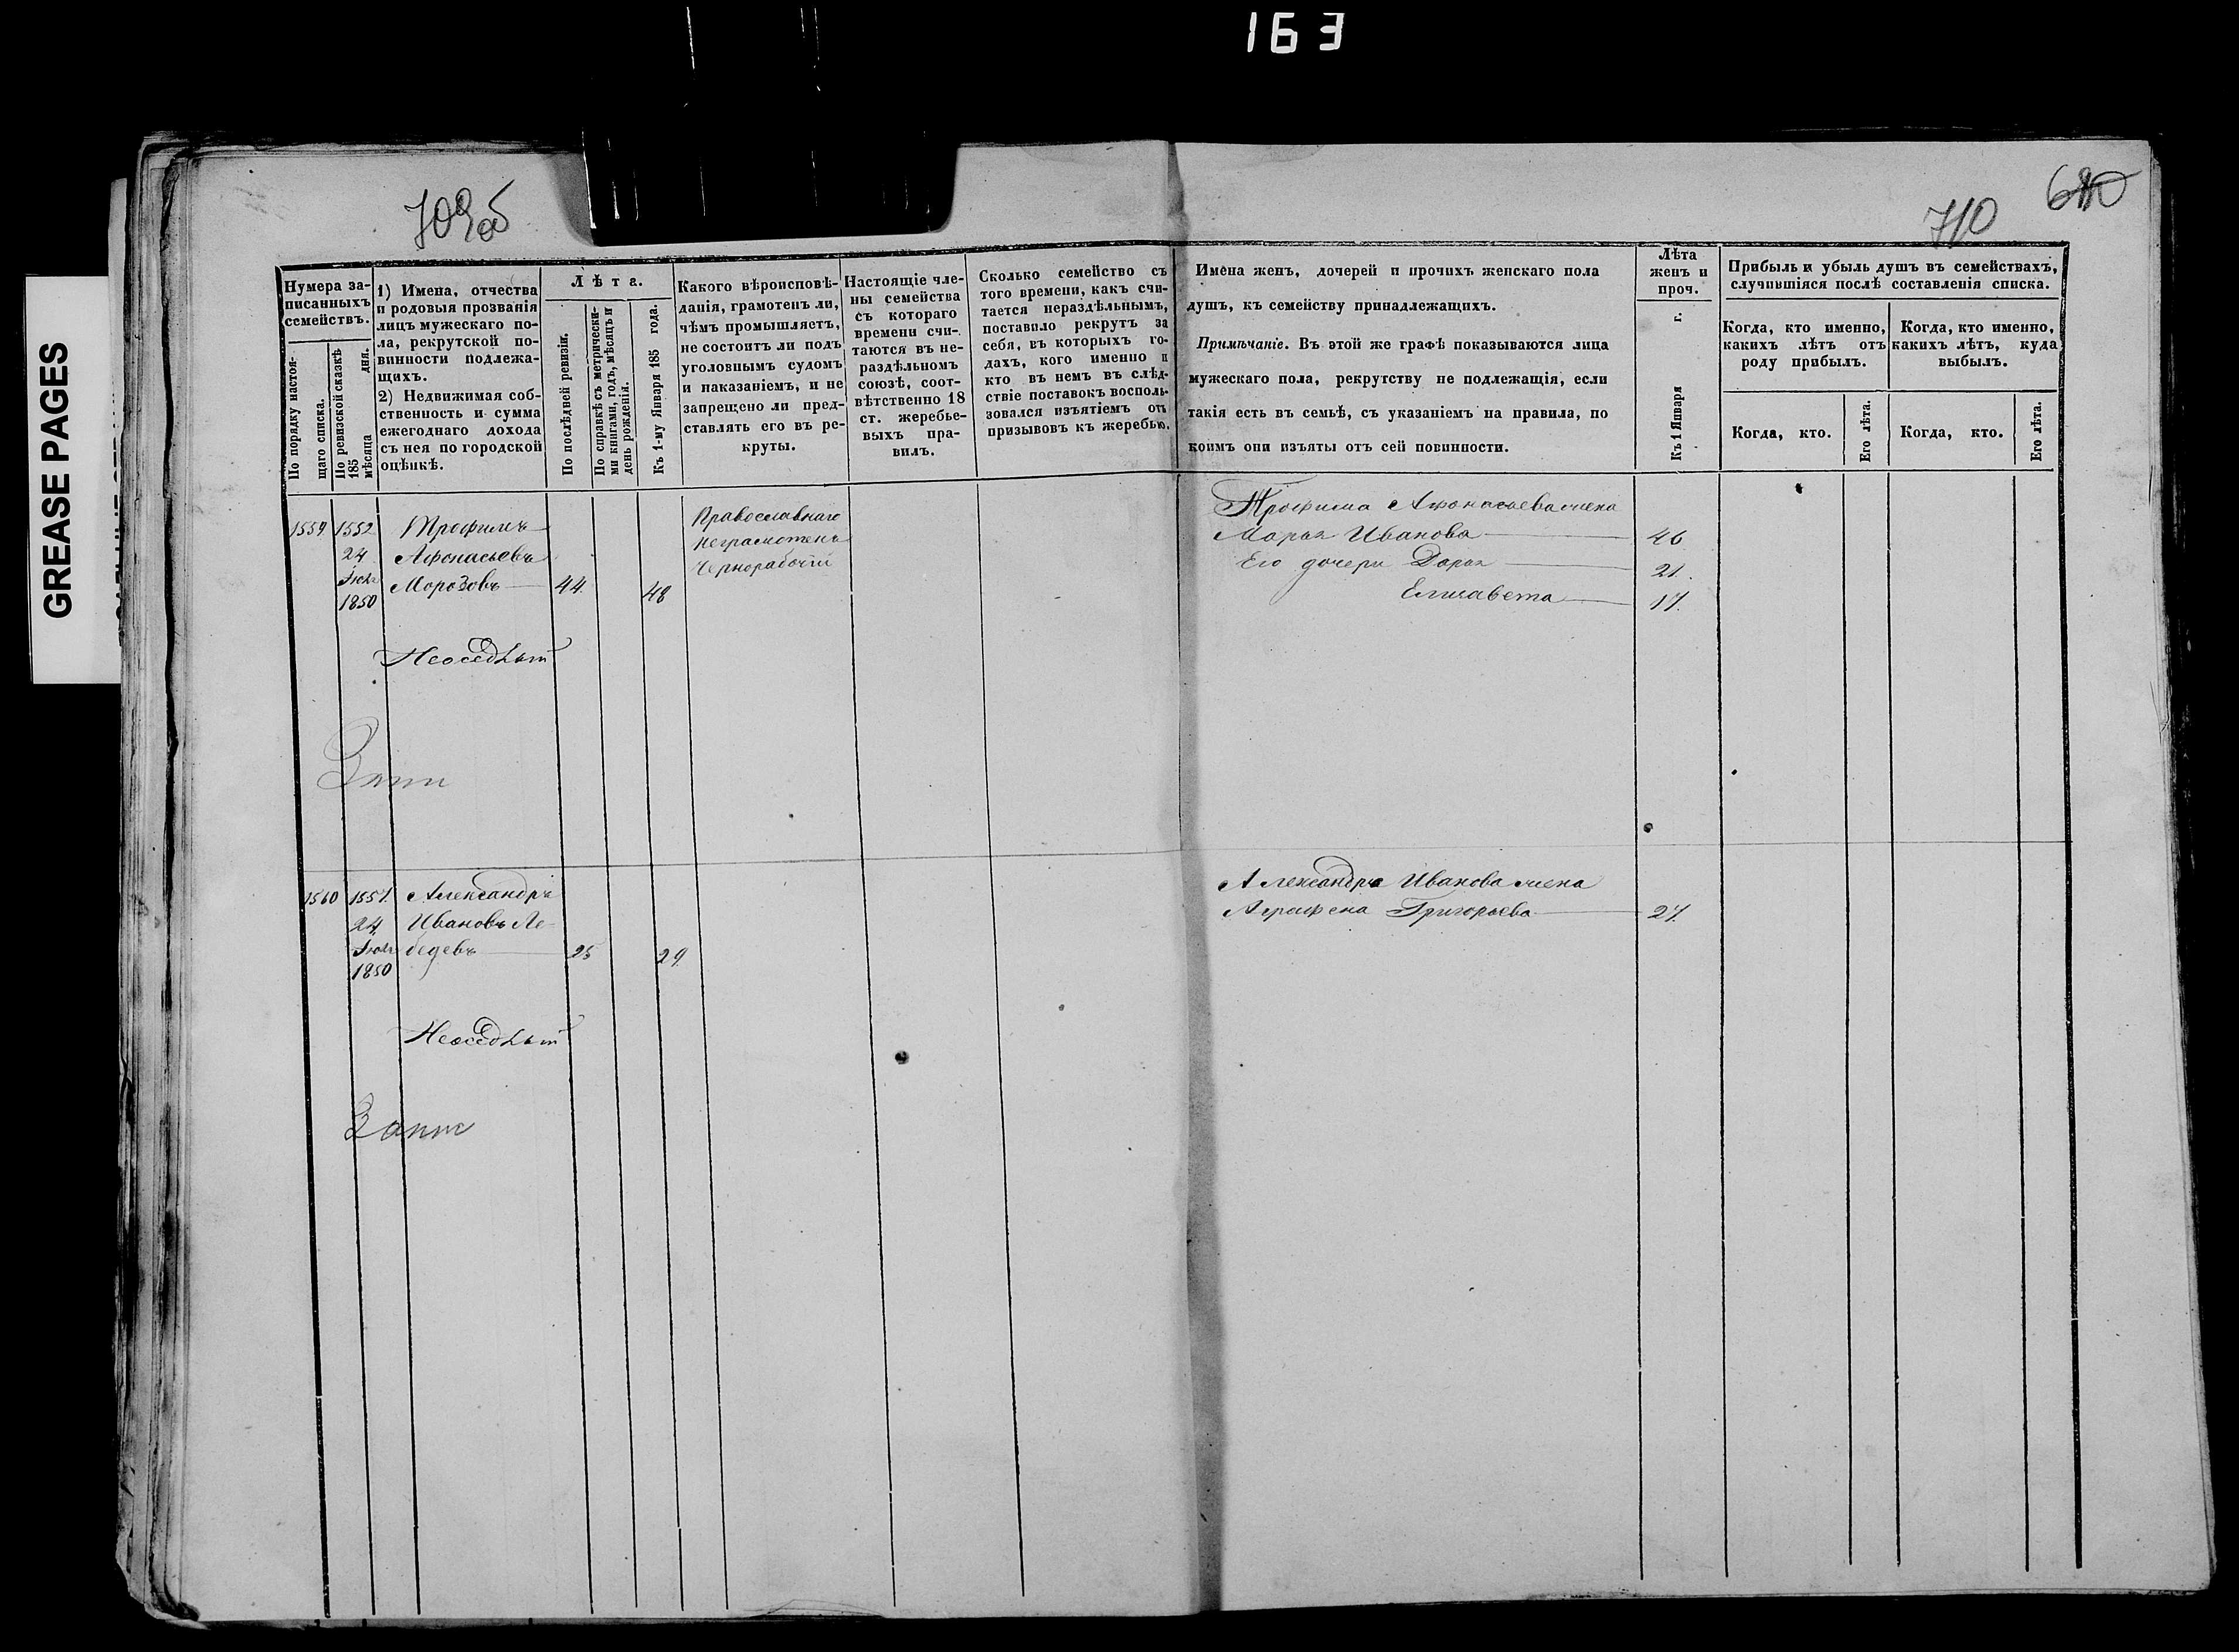 163
GREASE PAGES
709об
710
Нумера за-
писанныхъ
семействъ.
По порядку настоя-
щаго списка.
По ревизской сказкѣ
185
мѣсяца дня.
1) Имена, отчества
и родовыя прозванія
лицъ мужескаго по-
ла, рекрутской по-
винности подлежа-
щихъ.
2) Недвижимая соб-
ственность и сумма
ежегоднаго дохода
съ нея по городской
оцѣнкѣ.
Лѣта.
По послѣдней ревизіи.
По справкѣ съ метрически-
ми книгами, годъ, мѣсяцъ и
день рожденія.
Къ 1-му Января 185 года.
Какого вѣроисповѣ-
данія, грамотенъ ли,
чѣмъ промышляетъ,
не состоитъ ли подъ
уголовнымъ судомъ
и наказаніемъ, и не
запрещено ли пред-
ставлять его въ ре-
круты.
Настоящіе чле-
ны семейства
съ котораго
времени счи-
таются въ не-
раздѣльномъ
союзѣ, соот-
вѣтственно 18
ст. жеребье-
выхъ пра-
вилъ.
Сколько семейство съ
того времени, какъ счи-
тается нераздѣльнымъ,
поставило рекрутъ за
себя, въ которыхъ го-
дахъ, кого именно и
кто въ немъ въ слѣд-
ствіе поставокъ восполь-
зовался изъятіемъ отъ
призывовъ къ жеребью.
Имена женъ, дочерей и прочихъ женскаго пола
душъ, къ семейству принадлежащихъ.
Примѣчаніе. Въ этой же графѣ показываются лица
мужескаго пола, рекрутству не подлежащія, если
такія есть въ семьѣ, съ указаніемъ на правила, по
коимъ они изъяты отъ сей повинности.
Лѣта
женъ и
проч.
Къ 1 Января г.
Прибыль и убыль душъ въ семействахъ,
случившіяся послѣ составленія списка.
Когда, кто именно,
какихъ лѣтъ отъ
роду прибылъ.
Когда, кто именно,
какихъ лѣтъ, куда
выбылъ.
Когда, кто.
Его лѣта.
Когда, кто.
Его лѣта.
1559. 1552 Трофимъ
24 Афонасьевъ
Морозовъ 44. 48
1850
Православнаго
неграмотенъ
Чернорабочій
Трофима Афонасьева жена
Марья Иванова 46
Его дочери Дарья 21.
Елисавета 17.
Неоседлый
1560 1557. Александръ
24 Ивановъ Ле-
бедевъ 25 29.
1850
Александра Иванова жена
Аграфена Григорьева 27.
Неоседлый